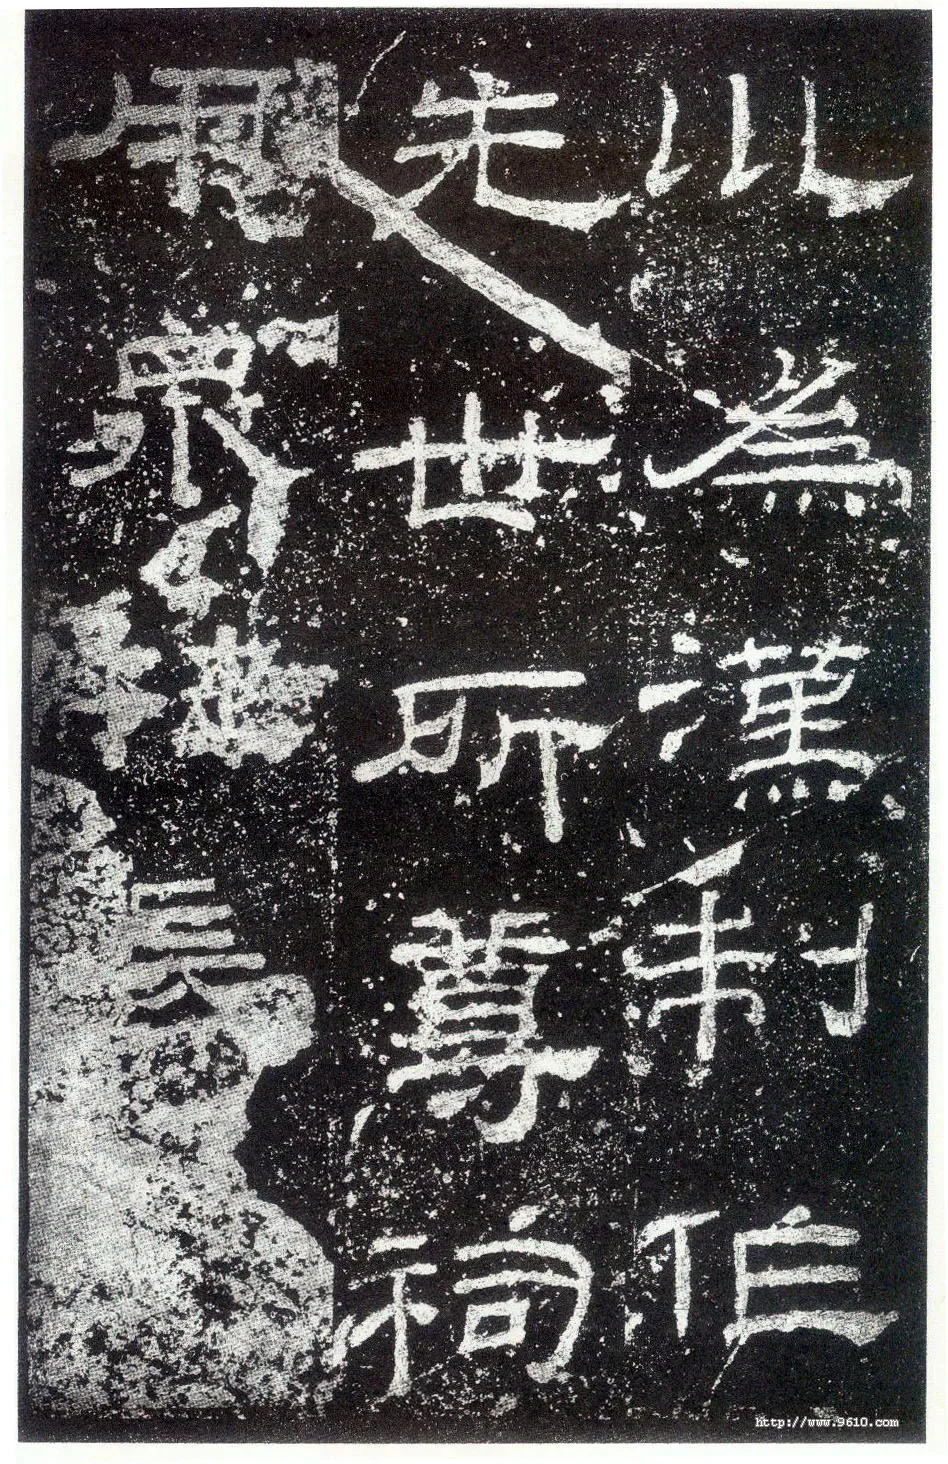 巛為漢制作
先世所尊祠
用衆牲長
http://www.9610.com